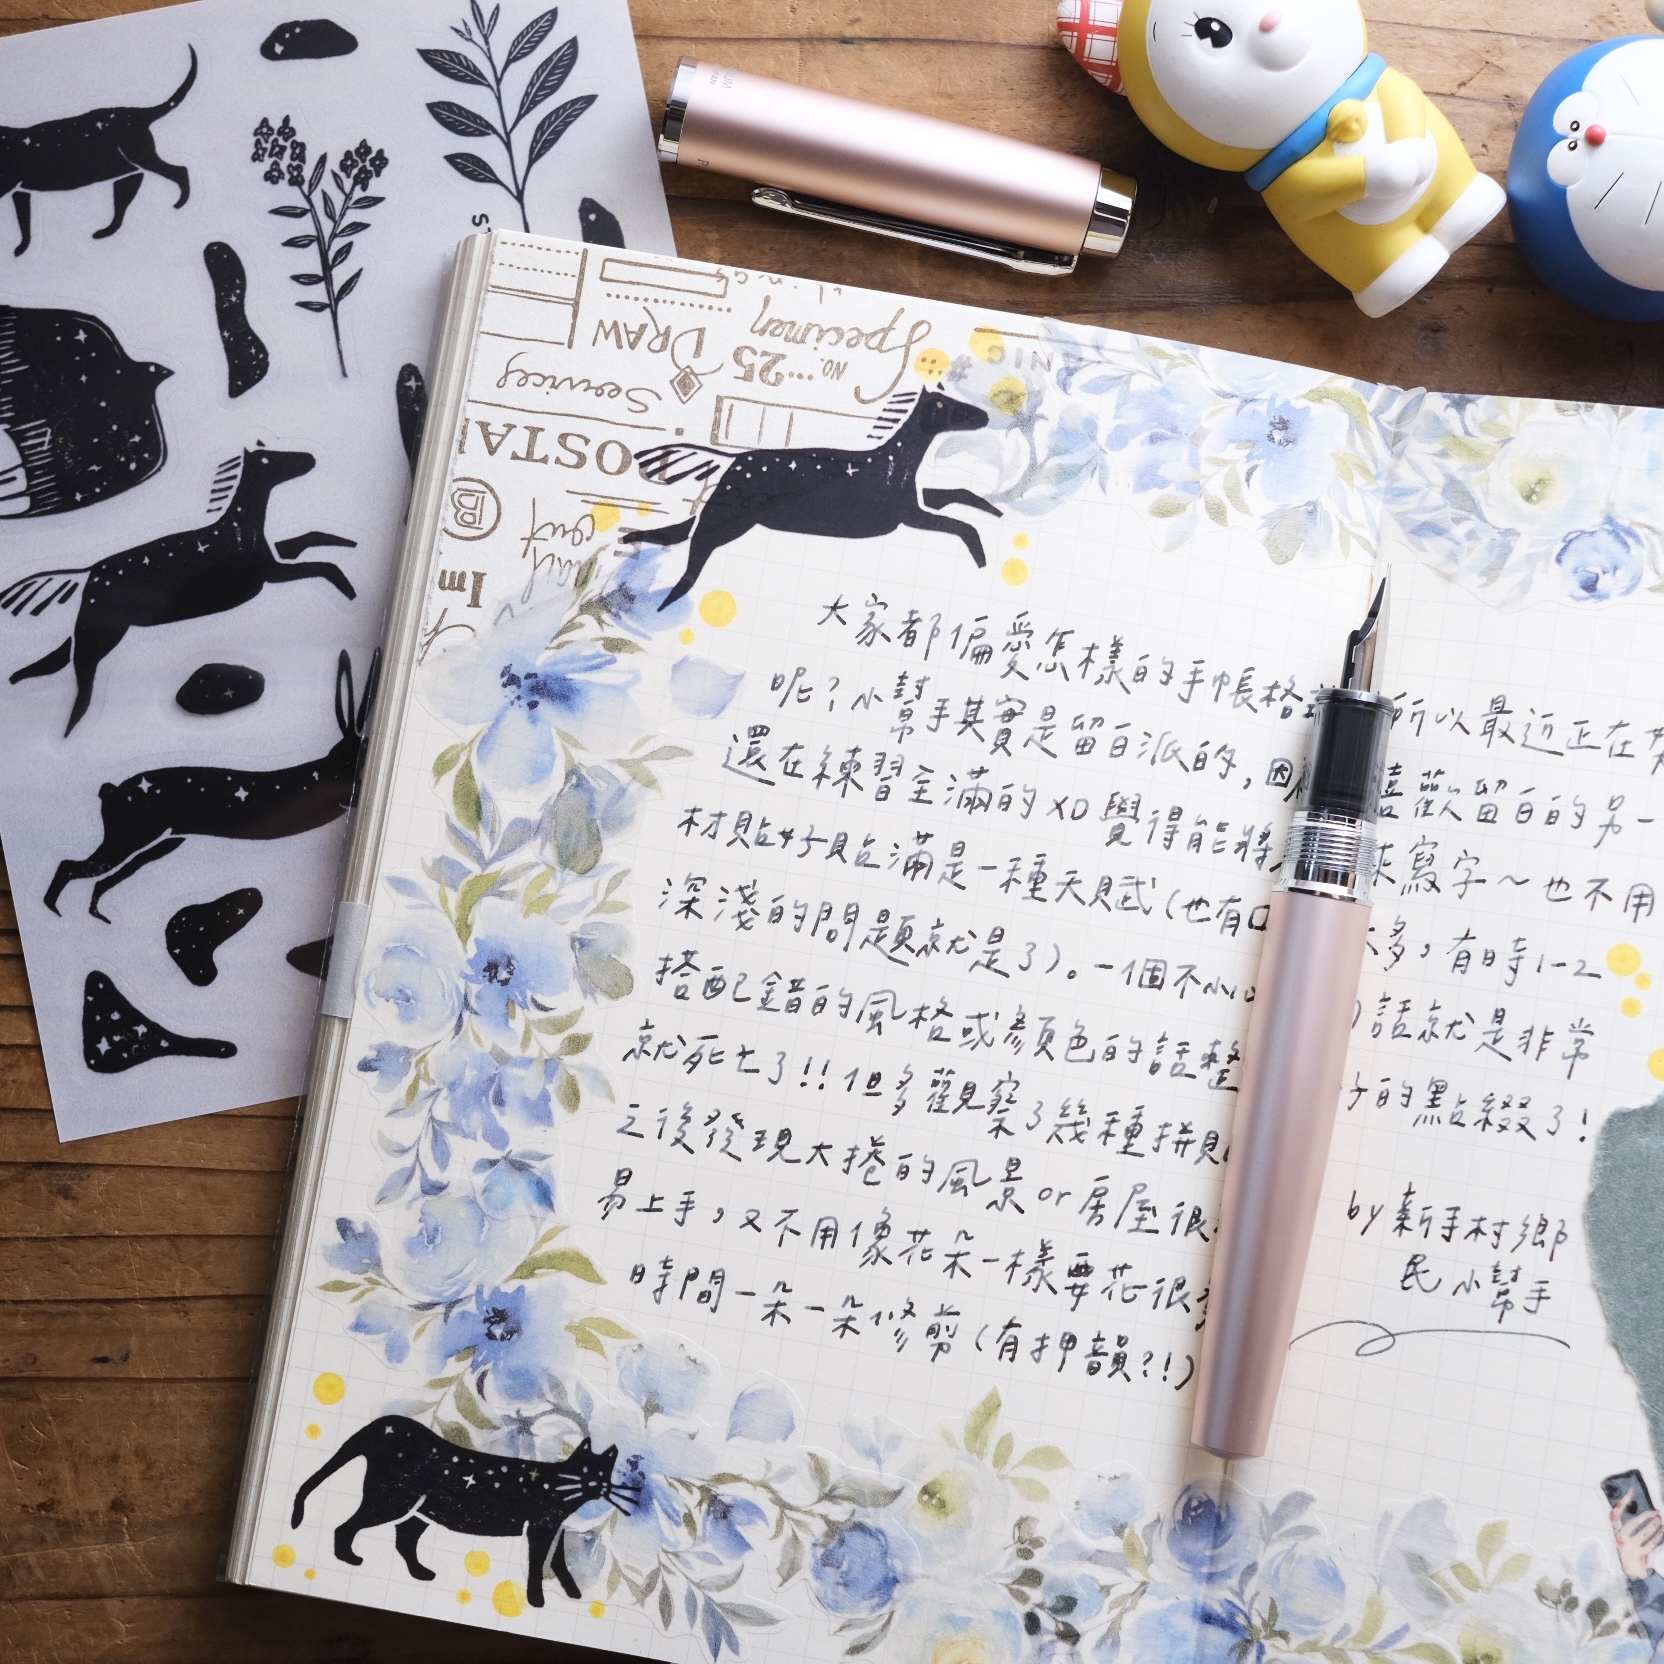 大家都偏愛怎樣的手帳格
呢？小幫手其實是留白派的，因
還在練習全滿的XD 覺得能將
材貼好貼滿是一種天賦（也有
深淺的問題就是了）。一個不小心
搭配錯的風格或顏色的話整
就死亡了!!但多觀察了幾種拼貼
之後發現大捲的風景or房屋很
易上手，又不用像花朵一樣要花很
時間一朵一朵修剪（有押韻?!）
所以最近正在
喜歡留白的另一
來寫字～也不用
太多，有時1-2
話就是非常
的點綴了！
by 新手村鄉
民 小幫手
Specimen
No. 25 DRAW
Services
OSTA
B
out
Im